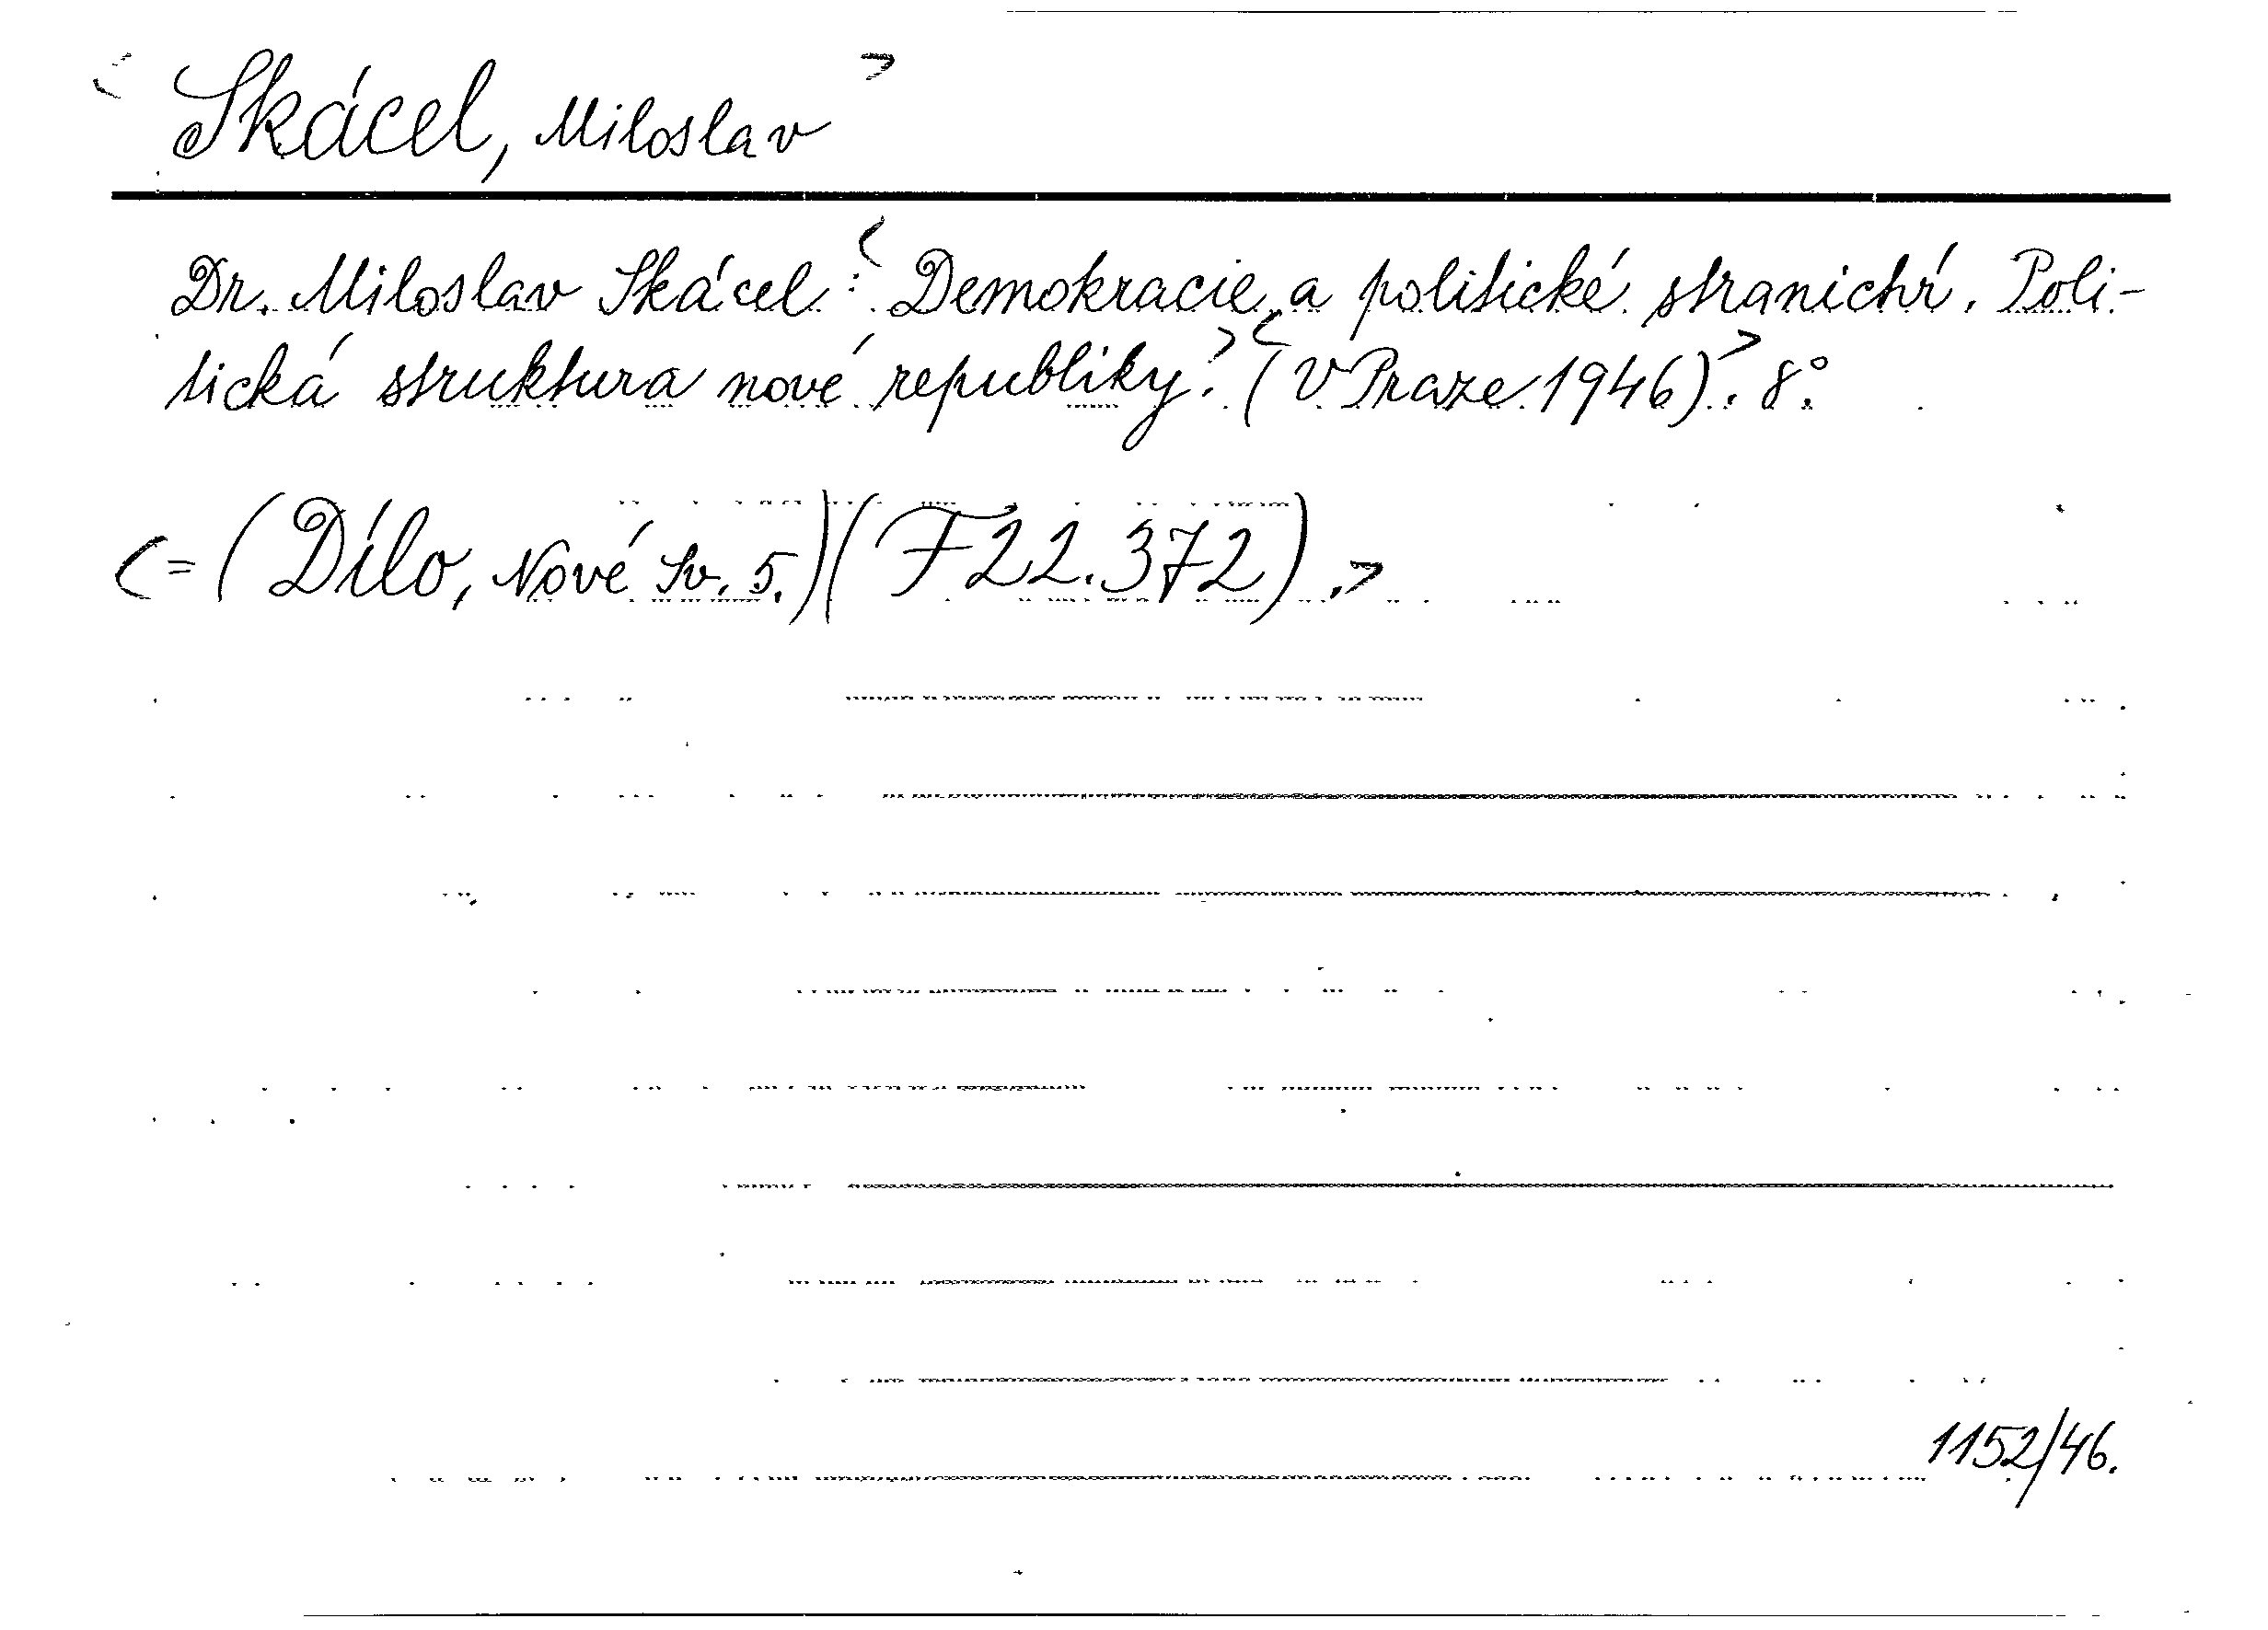 < Skácel, Miloslav >
Dr. Miloslav Skácel: < Demokracie a politické stranictví. Poli-
tická struktura nové republiky. > < (V Praze 1946). > 8°.
< = (Dílo, Nové Sv. 5.) (F 22.372). >
1152/46.